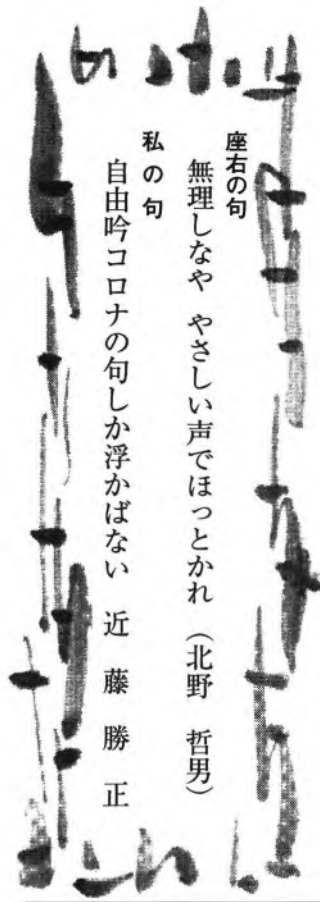 座右の句
無理しなや やさしい声でほっとかれ (北野 哲男)
私の句
自由吟コロナの句しか浮かばない 近藤勝正